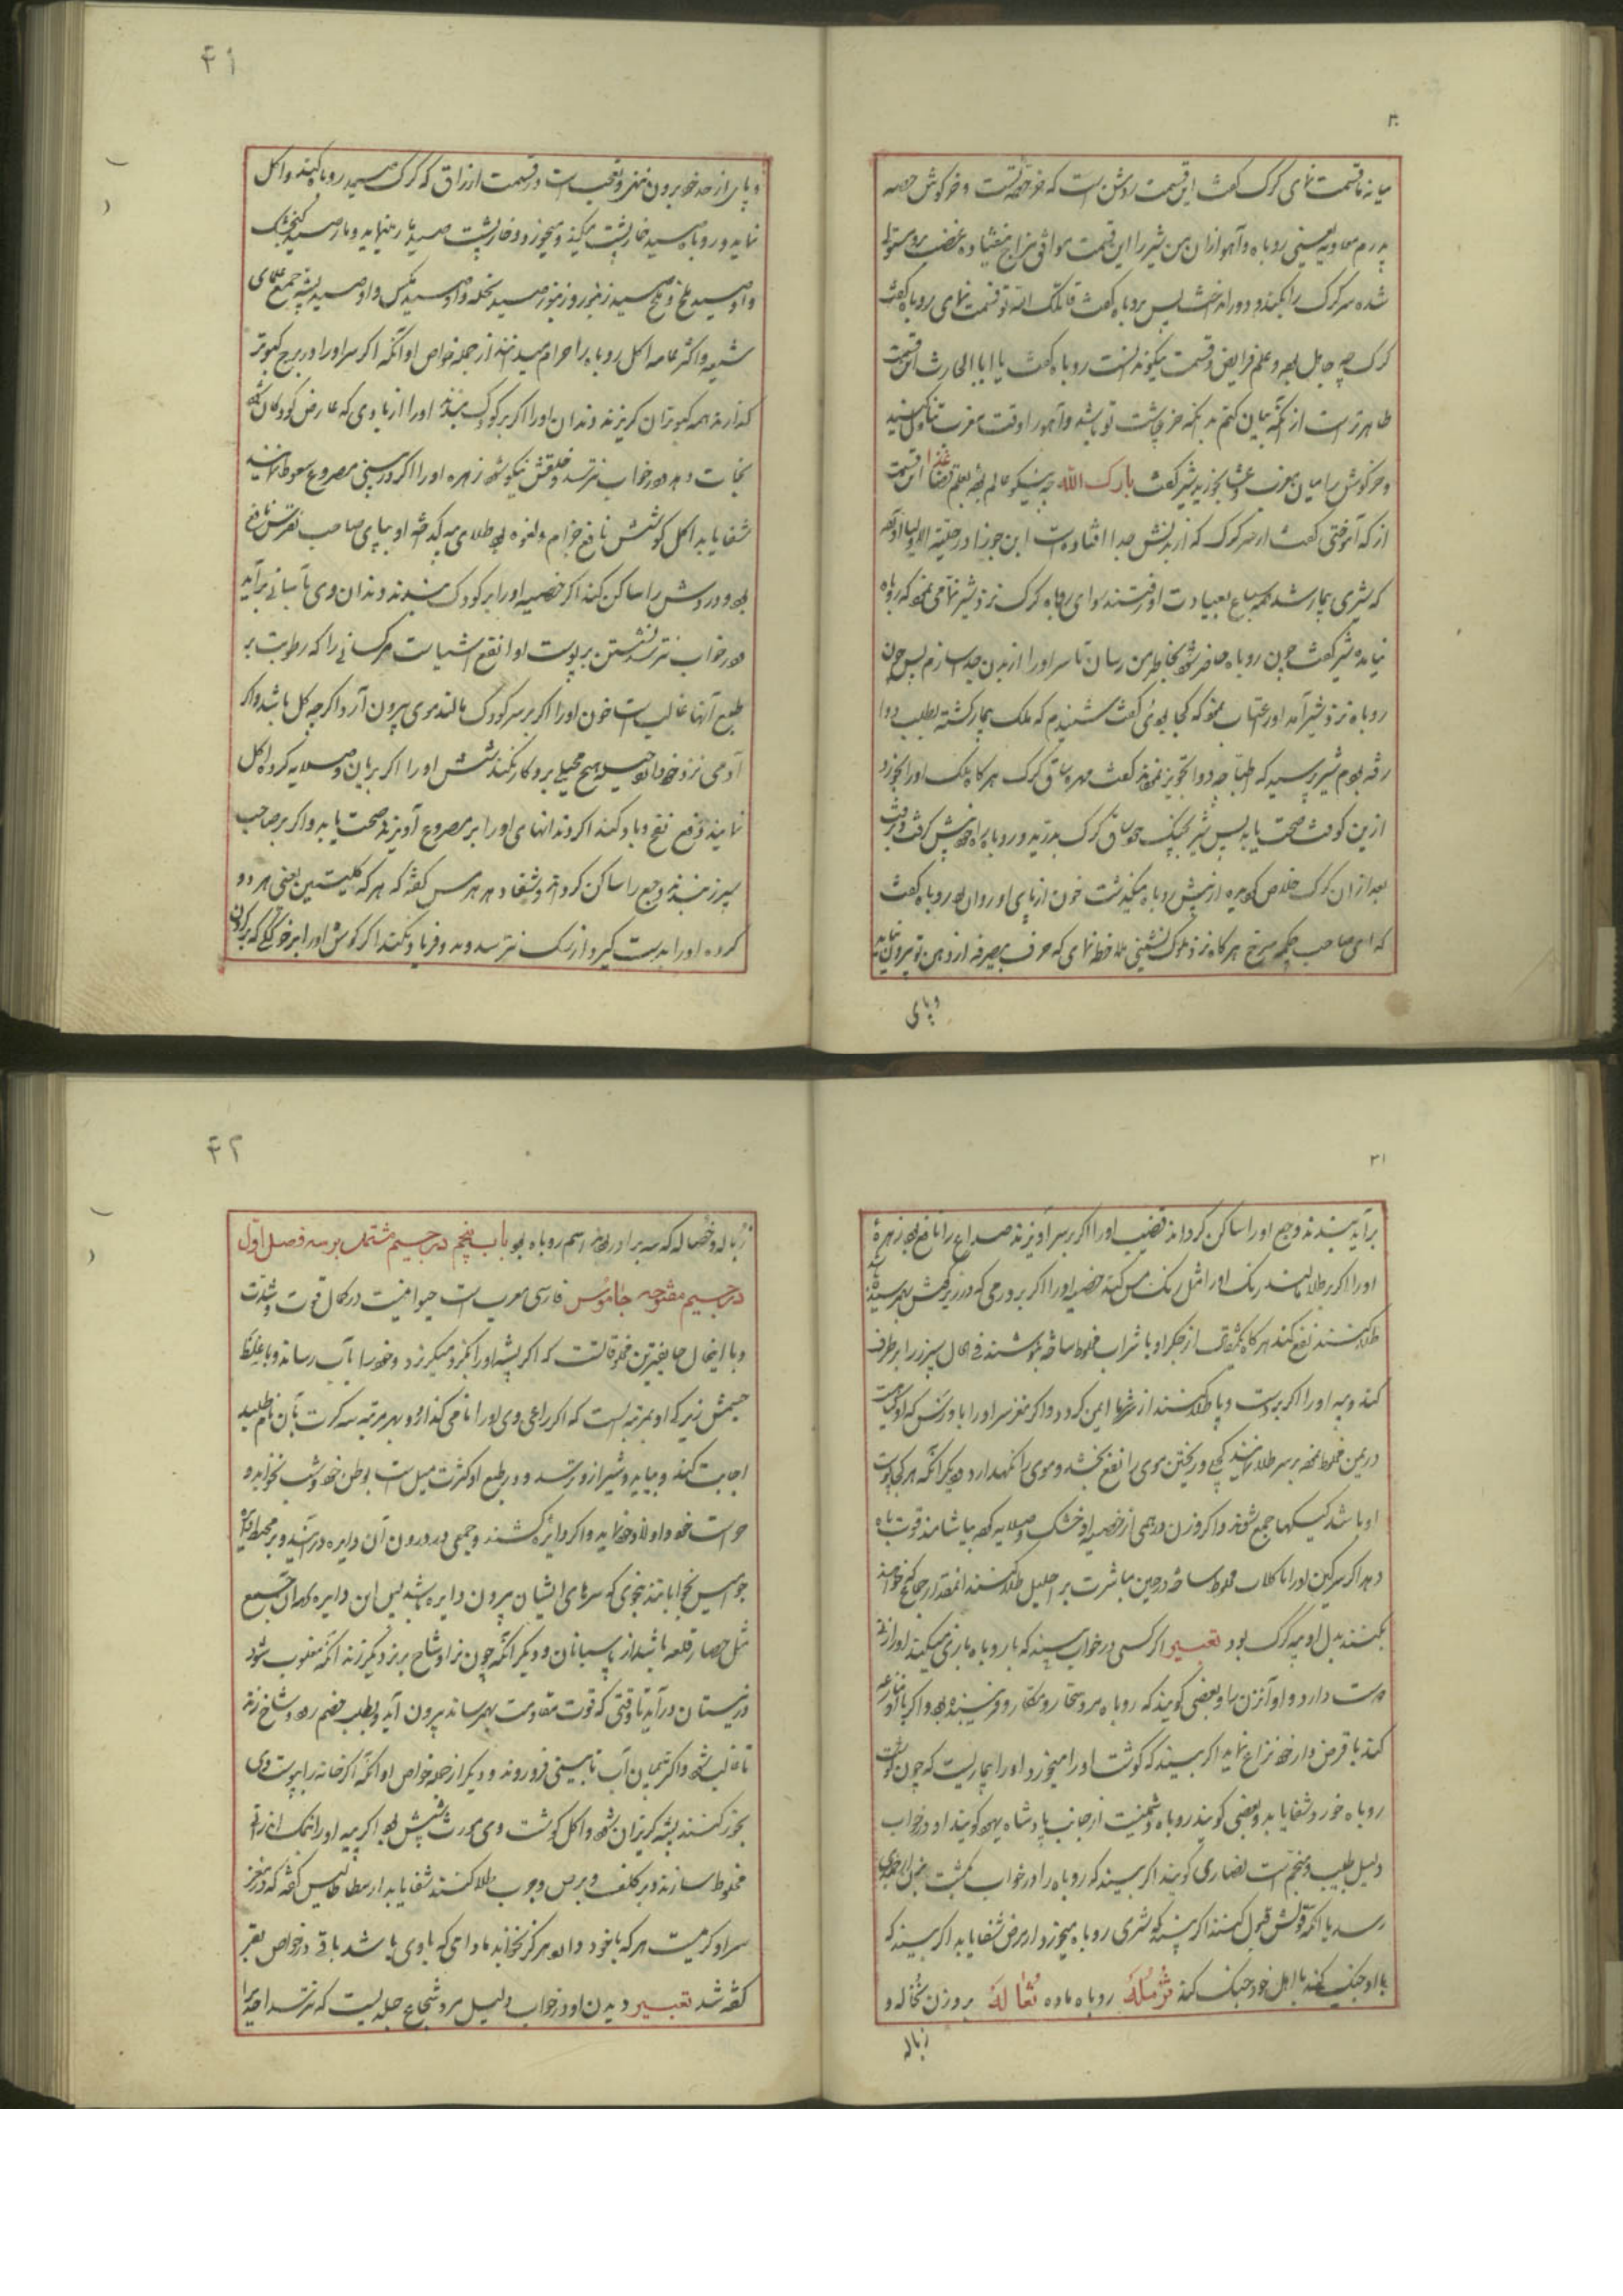 ۳۰
میانه ما قسمت نمای گرگ گفت این قسمت روشن است که خر حصه تست و خرگوش حصه
روباه و آهو از ان من شیر را این قسمت موافق مزاج نیفتاده غضب برو مستولی
شده سر گرگ را بکند و دور انداخت پس بروباه گفت قاتلک الله تو قسمت نمای روباه گفت
گرگ چه جاهل بود و علم فرایض و قسمت نیکو ندانست روباه گفت یا ابا الحارث این قسمت
ظاهرتر است از آنکه بیان کنم خر چاشت تو باشد و آهو را وقت مغرب تناول کنید
و خرگوش را میان مغرب و عشا بخورید شیر گفت بارک الله چه نیکو عالم بوده بعلم قضا این قسمت
از که آموختی گفت از سر گرگ که از بدنش جدا افتاده است ابن جوزا در حلیة الاولیا آورده
که شیری بیمار شد همه سباع بعیادت او رفتند سوای روباه گرگ نزد شیر نمامی نمود که روباه
نیامده شیر گفت چون روباه حاضر شود بخاطر من رسان تا سر او را از بدن جدا سازم پس چون
روباه نزد شیر آمد او را عتاب نمود که کجا بودی گفت شنیدم که ملک بیمار گشته بطلب دوا
رفته بودم شیر پرسید که اطبا چه دوا تجویز نمودند گفت مهره ساق گرگ هرگاه ملک او را بخورد
ازین کوفت صحت یابد پس شیر بچنگ خود ساق گرگ بدرید و روباه راه خود پیش گرفت و برفت
بعد از ان گرگ خلاص گردیده از پیش روباه میگذشت خون از پای او روان بود روباه گفت
که ای صاحب چکمه سرخ هرگاه نزد ملوک نشینی ملاحظه نمای که حرف بیصرفه از دهن تو بیرون نیاید
و پای
۴۱
و پای از حد خود بیرون ننهی و تعجب است در قسمت ارزاق که گرگ صید روباه کند و اکل
نماید و روباه صید خارپشت میکند و میخورد و خارپشت صید مار مینماید و مار صید گنجشک
و او صید ملخ و ملخ صید زنبور و زنبور صید نحله و او صید مگس و او صید پشه جمیع علمای
شیعه و اکثر عامه اکل روباه را حرام میدانند از جمله خواص او آنکه اگر سر او را در برج کبوتر
گذارند همه کبوتران گریزند دندان او را اگر بر کودک بندند او را از بادی که عارض کودکان شود
نجات دهد و در خواب نترسد و خلقش نیکو شود زهره او را اگر در بینی مصروع سعوط نمایند
شفا یابد اکل گوشتش نافع جذام و لقوه بود طلای پیه گداخته او بپای صاحب نقرس نافع
بود و دردش را ساکن کند اگر خصیه او را بر کودک بندند دندان وی بآسانی برآید
و در خواب نترسد نشستن بر پوست او انفع اشیاست مر کسانی را که رطوبت بر
طبع آنها غالب است خون او را اگر بر سر کودک مالند موی بیرون آرد اگر چه کل باشد و اگر
آدمی نزد خود دارد حیله هیچ محیلی برو کار نکند شش او را اگر بریان و صلایه کرده اکل
نمایند دفع نفخ و باد کند اگر دندانهای او را بر مصروع آویزند صحت یابد و اگر بر صاحب
سپرز بندند وجع را ساکن گرداند و شفا دهد هرمس گفته که هر که کلیتین یعنی هر دو
گرده او را بدست گیرد از سگ نترسد و فریاد نکند اگر گوش او را بر خوکی که بر گردن
۳۱
برآید بندند وجع او را ساکن گرداند قضیب او را اگر بر سر آویزند صداع را نافع بود زهره
او را اگر بر طلا مالند رنگ او را مثل رنگ مس کند خصیه او را اگر بر ورمی که در زیر گوش بهم رسیده
طلا کنند نفع کند هرگاه یکمثقال از جگر او با شراب مخلوط ساخته بنوشند فی الحال سپرز را برطرف
کند و پیه او را اگر بر دست و پا طلا کنند از سرما ایمن گردد و اگر مغز سر او را
مخلوط نموده بر سر طلا نمایند کچلی و ریختن موی را نفع بخشد و موی را نگهدارد دیگر آنکه هر کجا پوست
او باشد کیکها جمع شوند و اگر وزن درهمی از خصیه او خشک و صلایه کرده بیاشامند قوت باه
دهد اگر سرگین او را با گلاب مخلوط ساخته در حین مباشرت بر احلیل طلا کنند آنمقدار جماع که خواهند
بکنند بدل او پیه گرگ بود تعبیر اگر کسی در خواب بیند که با روباه بازی میکند او را زنی
دوست دارد و او آن زن را و بعضی گویند که روباه مرد سخار و مکار و فریبنده بود و اگر با او منازعه
کند با قرض دار خود نزاع نماید اگر بیند که گوشت او را میخورد او را بیماریست که چون گوشت
روباه خورد شفا یابد و بعضی گویند روباه دشمنیست از جانب پادشاه یهود گویند او در خواب
دلیل طبیب و منجم است نصاری گویند اگر بیند که روباه را در خواب کشت
رسد یا آنکه قولش قبول کنند اگر بیند که شیری روباه میخورد از مرض شفا یابد اگر بیند که
با او جنگ کند با اهل خود جنگ کند ثُرمُلَه روباه ماده ثُعالَه بر وزن نخاله و
زباله
۴۲
زباله و خصاله که سه برادر بودند اسم روباه بود باب پنجم در جیم مشتمل بر سه فصل اول
در جیم مفتوحه جاموس فارسی معرب است حیوانیست در کمال قوت و شدت
و با اینحال ضعیفترین مخلوقاتست که اگر پشه او را بگزد میگریزد و خود را بآب رساند و با غلظ
جسمش زیرکی او بمرتبه ایست که اگر راعی وی او را نامی گذارد و بهر مرتبه سه کرت بآن نام طلبد
اجابت کند و بیاید و شیر ازو ترسد و در طبع او کثرت میل است بوطن خود و شب نخوابد و
حراست خود و اولاد خود نماید و اگر دایره کشند و جمعی در درون آن دایره درآیند و بر محیط دایره
جوامیس بخوابانند بنحوی که سرهای ایشان بیرون دایره باشد پس این دایره برای جمیع
مثل حصار قلعه باشد از پاسبانان و دیگر آنکه چون نر او شاخ بر نر دیگر زند آنکه مغلوب شود
در نیستان درآید تا وقتی که قوت مقاومت بهم رساند بیرون آید و بطلب خصم رود و شاخ زند
تا غالب شود و اکثر میان آب تا بینی فرو روند و دیگر از جمله خواص او آنکه اگر خانه را بپوست وی
بخور کنند پشه گریزان شود و اکل گوشت وی مورث شپش بود اگر پیه او را با نمک اندرانی
مخلوط سازند و بر کلف و برص و جرب طلا کنند شفا یابد ارسطاطالیس گفته که در مغز
سر او کرمیست هر که با خود دارد هرگز نخوابد مادامی که با وی باشد باقی در خواص بقر
گفته شد تعبیر دیدن او در خواب دلیل مرد شجاع جلدیست که نترسد احدی را